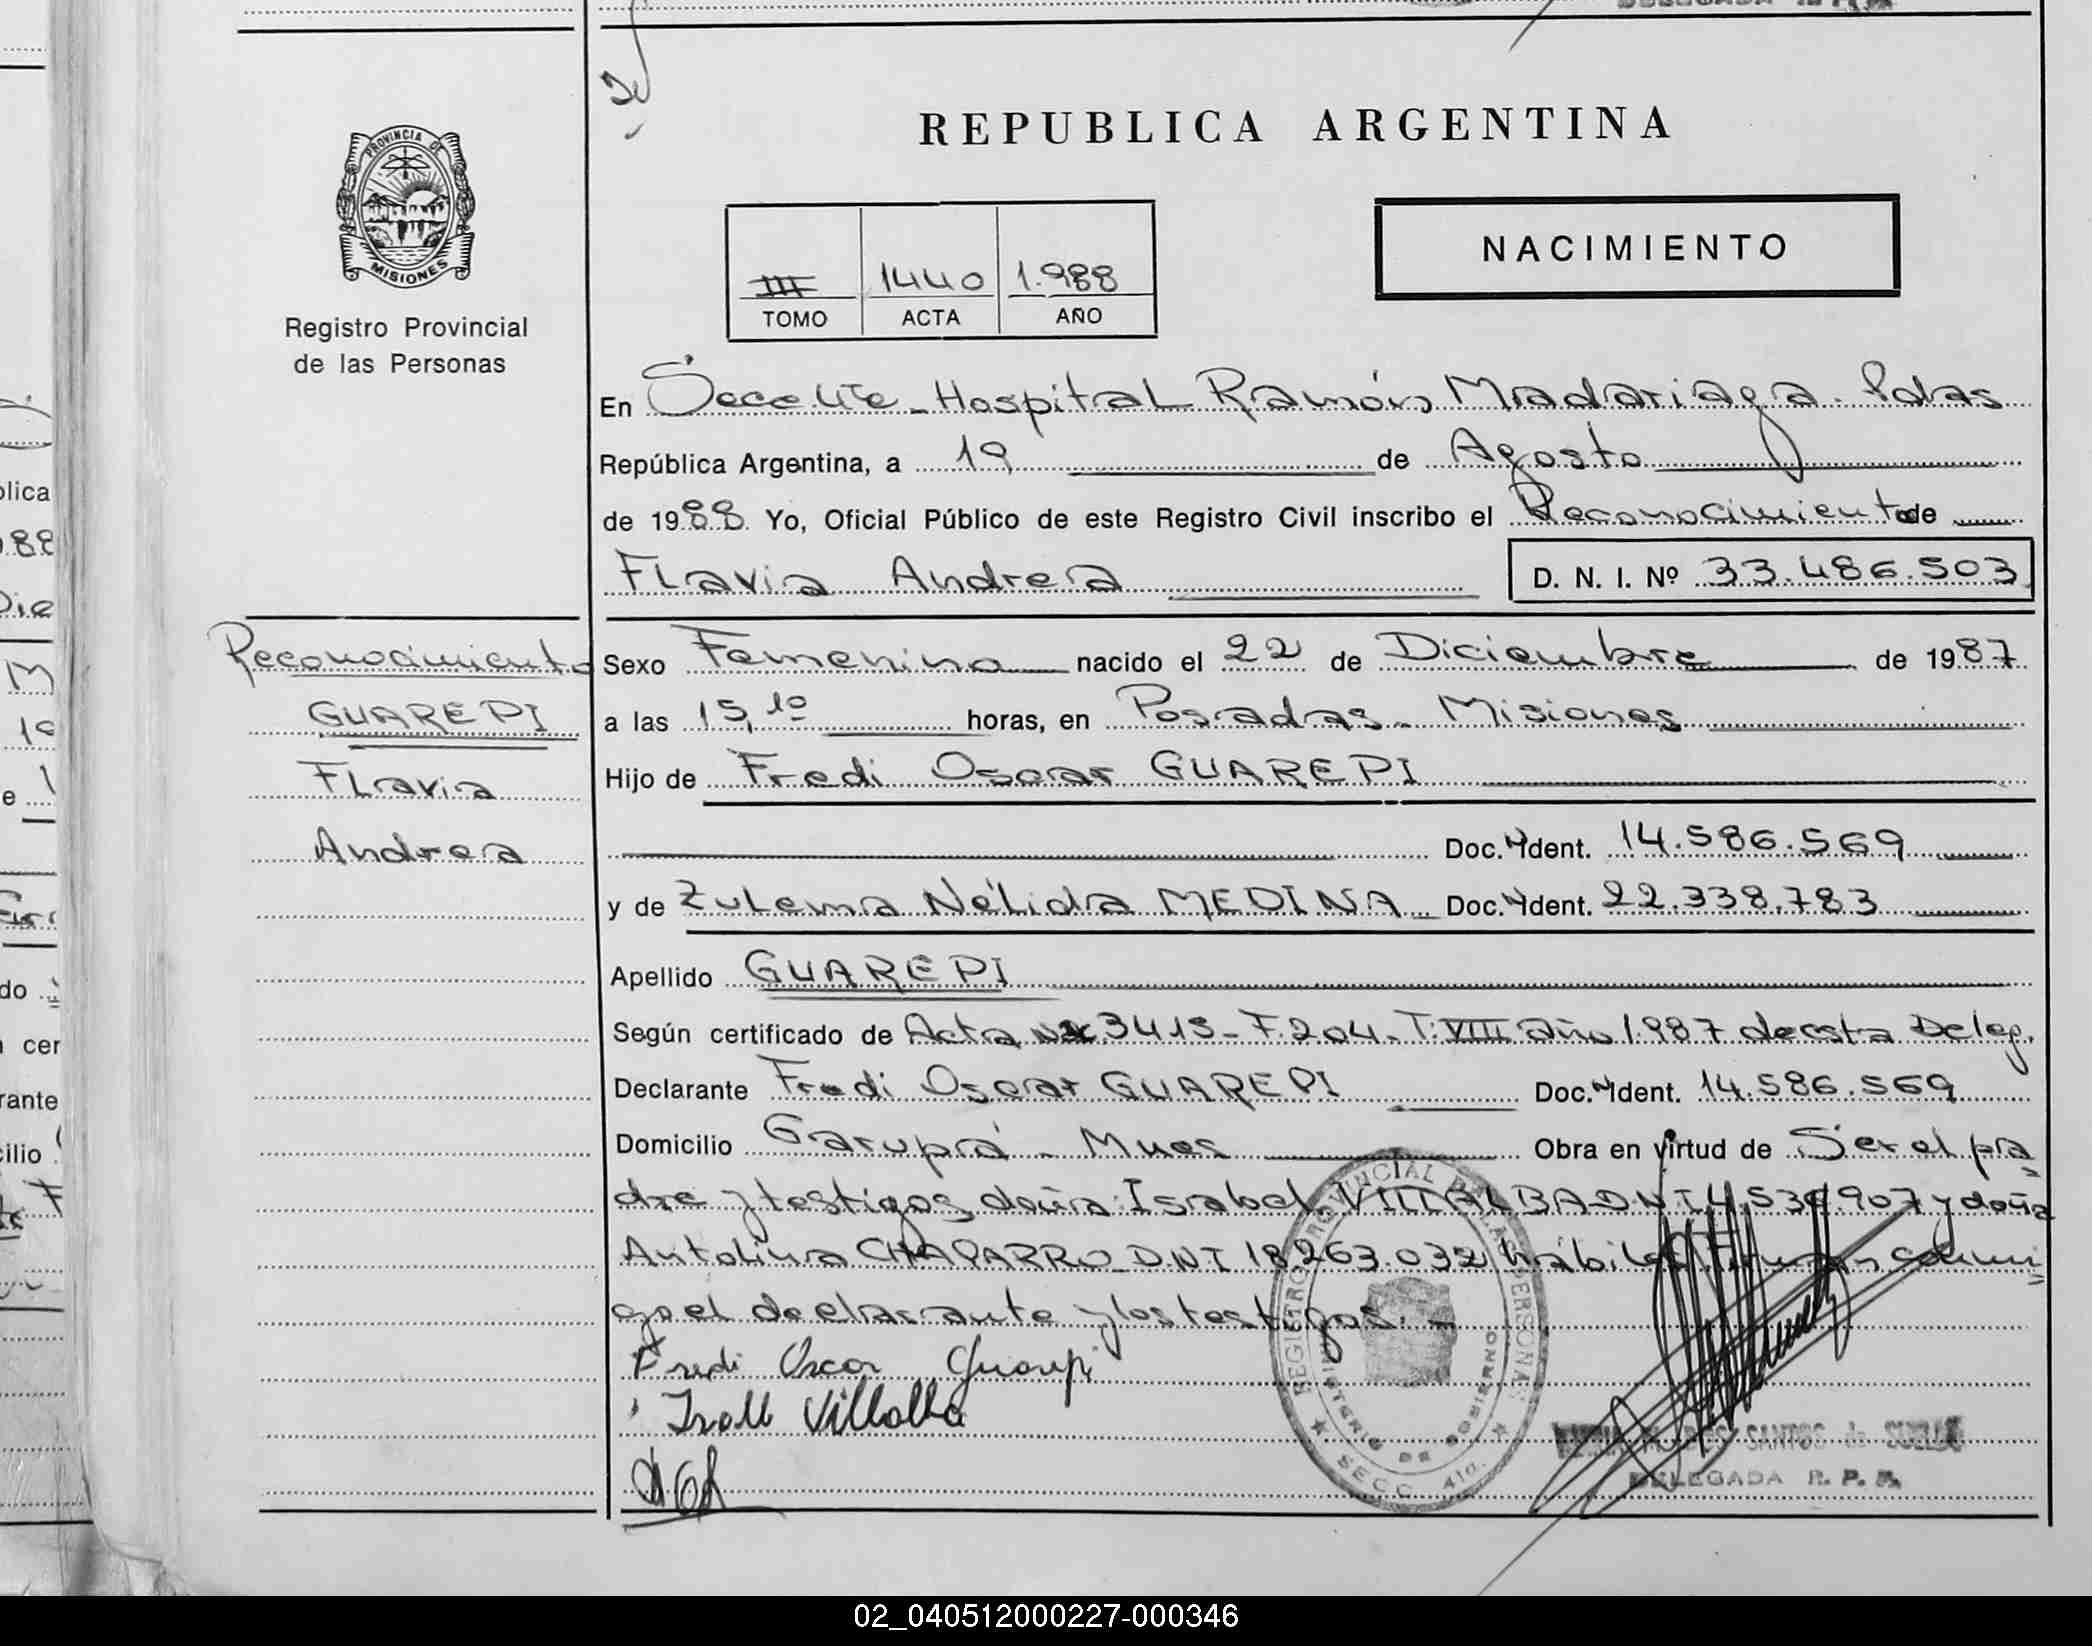 REPUBLICA ARGENTINA
PROVINCIA DE
MISIONES
Registro Provincial
de las Personas
III 1440 1.988
TOMO ACTA AÑO
NACIMIENTO
En Secc. 4ta - Hospital Ramón Madariaga. Pdas
República Argentina, a 19 de Agosto
de 1988 Yo, Oficial Público de este Registro Civil inscribo el Reconocimiento de
Flavia Andrea D. N. I. Nº 33.486.503
Reconocimiento
GUAREPI
Flavia
Andrea
Sexo Femenino nacido el 22 de Diciembre de 1987
a las 15,10 horas, en Posadas - Misiones
Hijo de Fredi Oscar GUAREPI
Doc. Ident. 14.586.569
y de Zulema Nélida MEDINA Doc. Ident. 22.338.783
Apellido GUAREPI
Según certificado de Acta 3413 - F. 204 - T. VIII año 1.987 de esta Deleg.
Declarante Fredi Oscar GUAREPI Doc. Ident. 14.586.569
Domicilio Garupá - Mnes Obra en virtud de Ser el pa
dre y testigos doña: Isabel VILLALBA DNI y doña
Antolina CHAPARRO DNI 18.263.032 hábiles Firman conmi
go el declarante y los testigos. -
Fredi Oscar Guarepi
Villalba
REGISTRO PROVINCIAL DE LAS PERSONAS
MINISTERIO DE GOBIERNO
SECC. 4ta.
SANTOS de
DELEGADA R. P. P.
02_040512000227-000346